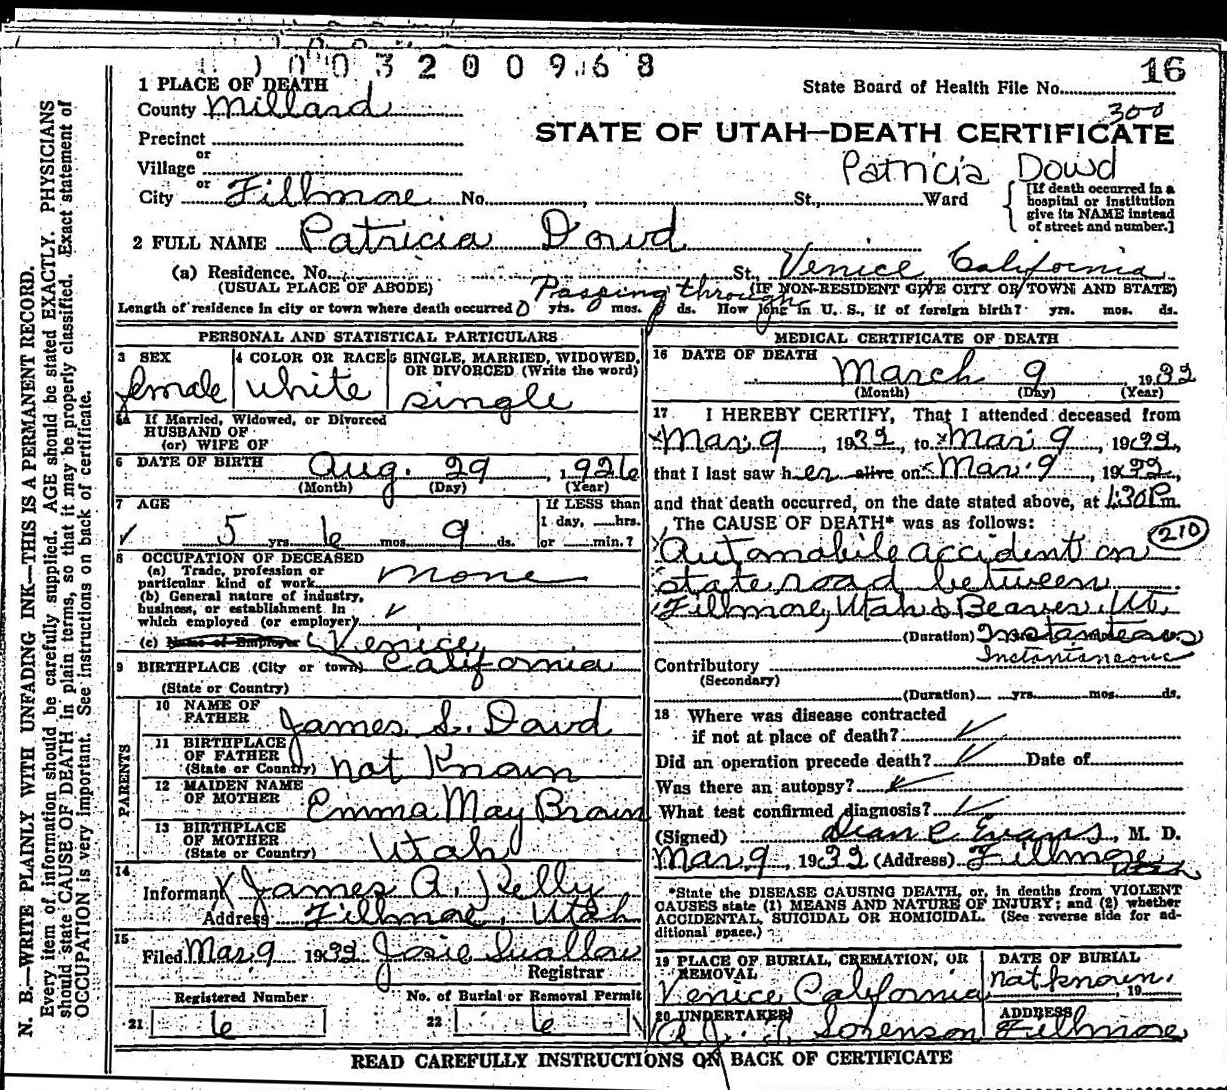 0 0 3 2 0 0 9 6 8
16
1 PLACE OF DEATH
State Board of Health File No.
County Millard
300
Precinct
STATE OF UTAH—DEATH CERTIFICATE
or
Village
Patricia Dowd
or
City Fillmore No. , St., Ward
[If death occurred in a
hospital or institution
give its NAME instead
of street and number.]
2 FULL NAME Patricia Dowd
(a) Residence. No. St., Venice, California
(USUAL PLACE OF ABODE) (IF NON-RESIDENT GIVE CITY OR TOWN AND STATE)
Passing through
Length of residence in city or town where death occurred 0 yrs. 0 mos. ds. How long in U. S., if of foreign birth? yrs. mos. ds.
PERSONAL AND STATISTICAL PARTICULARS
3 SEX
female
4 COLOR OR RACE
white
5 SINGLE, MARRIED, WIDOWED,
OR DIVORCED (Write the word)
single
5A If Married, Widowed, or Divorced
HUSBAND OF
(or) WIFE OF
6 DATE OF BIRTH Aug. 29, 1926
(Month) (Day) (Year)
7 AGE
If LESS than
1 day, hrs.
or min.?
✓ 5 yrs. 6 mos. 9 ds.
8 OCCUPATION OF DECEASED
(a) Trade, profession or
particular kind of work none
(b) General nature of industry,
business, or establishment in
which employed (or employer) ✓
(c) Name of Employer Venice,
9 BIRTHPLACE (City or town) California
(State or Country)
PARENTS
10 NAME OF
FATHER James S. Dowd
11 BIRTHPLACE
OF FATHER
(State or Country) not Known
12 MAIDEN NAME
OF MOTHER Emma May Brown
13 BIRTHPLACE
OF MOTHER
(State or Country) Utah
14
Informant James A. Kelly
Address Fillmore, Utah
15
Filed Mar. 9 1932 Josie Swallow
Registrar
Registered Number
21 6
No. of Burial or Removal Permit
22 6
MEDICAL CERTIFICATE OF DEATH
16 DATE OF DEATH
March 9 1932
(Month) (Day) (Year)
17 I HEREBY CERTIFY, That I attended deceased from
Mar. 9, 1932, to Mar. 9, 1932,
that I last saw her alive on Mar. 9, 1932,
and that death occurred, on the date stated above, at 1:30 P.m.
The CAUSE OF DEATH* was as follows:
210
Automobile accident on
state road between
Fillmore, Utah & Beaver, Ut.
(Duration) Instanteous
Instantaneous
Contributory
(Secondary)
(Duration) yrs. mos. ds.
18 Where was disease contracted
if not at place of death? ✓
Did an operation precede death? ✓ Date of
Was there an autopsy? ✓
What test confirmed diagnosis? ✓
(Signed) Dean C. Evans, M. D.
Mar. 9, 1932 (Address) Fillmore,
Utah
*State the DISEASE CAUSING DEATH, or, in deaths from VIOLENT
CAUSES state (1) MEANS AND NATURE OF INJURY; and (2) whether
ACCIDENTAL, SUICIDAL OR HOMICIDAL. (See reverse side for ad-
ditional space.)
19 PLACE OF BURIAL, CREMATION, OR
REMOVAL
Venice California
DATE OF BURIAL
Not known, 19
20 UNDERTAKER
Sorenson
ADDRESS
Fillmore
READ CAREFULLY INSTRUCTIONS ON BACK OF CERTIFICATE
N. B.—WRITE PLAINLY WITH UNFADING INK—THIS IS A PERMANENT RECORD.
Every item of information should be carefully supplied. AGE should be stated EXACTLY. PHYSICIANS
should state CAUSE OF DEATH in plain terms, so that it may be properly classified. Exact statement of
OCCUPATION is very important. See instructions on back of certificate.